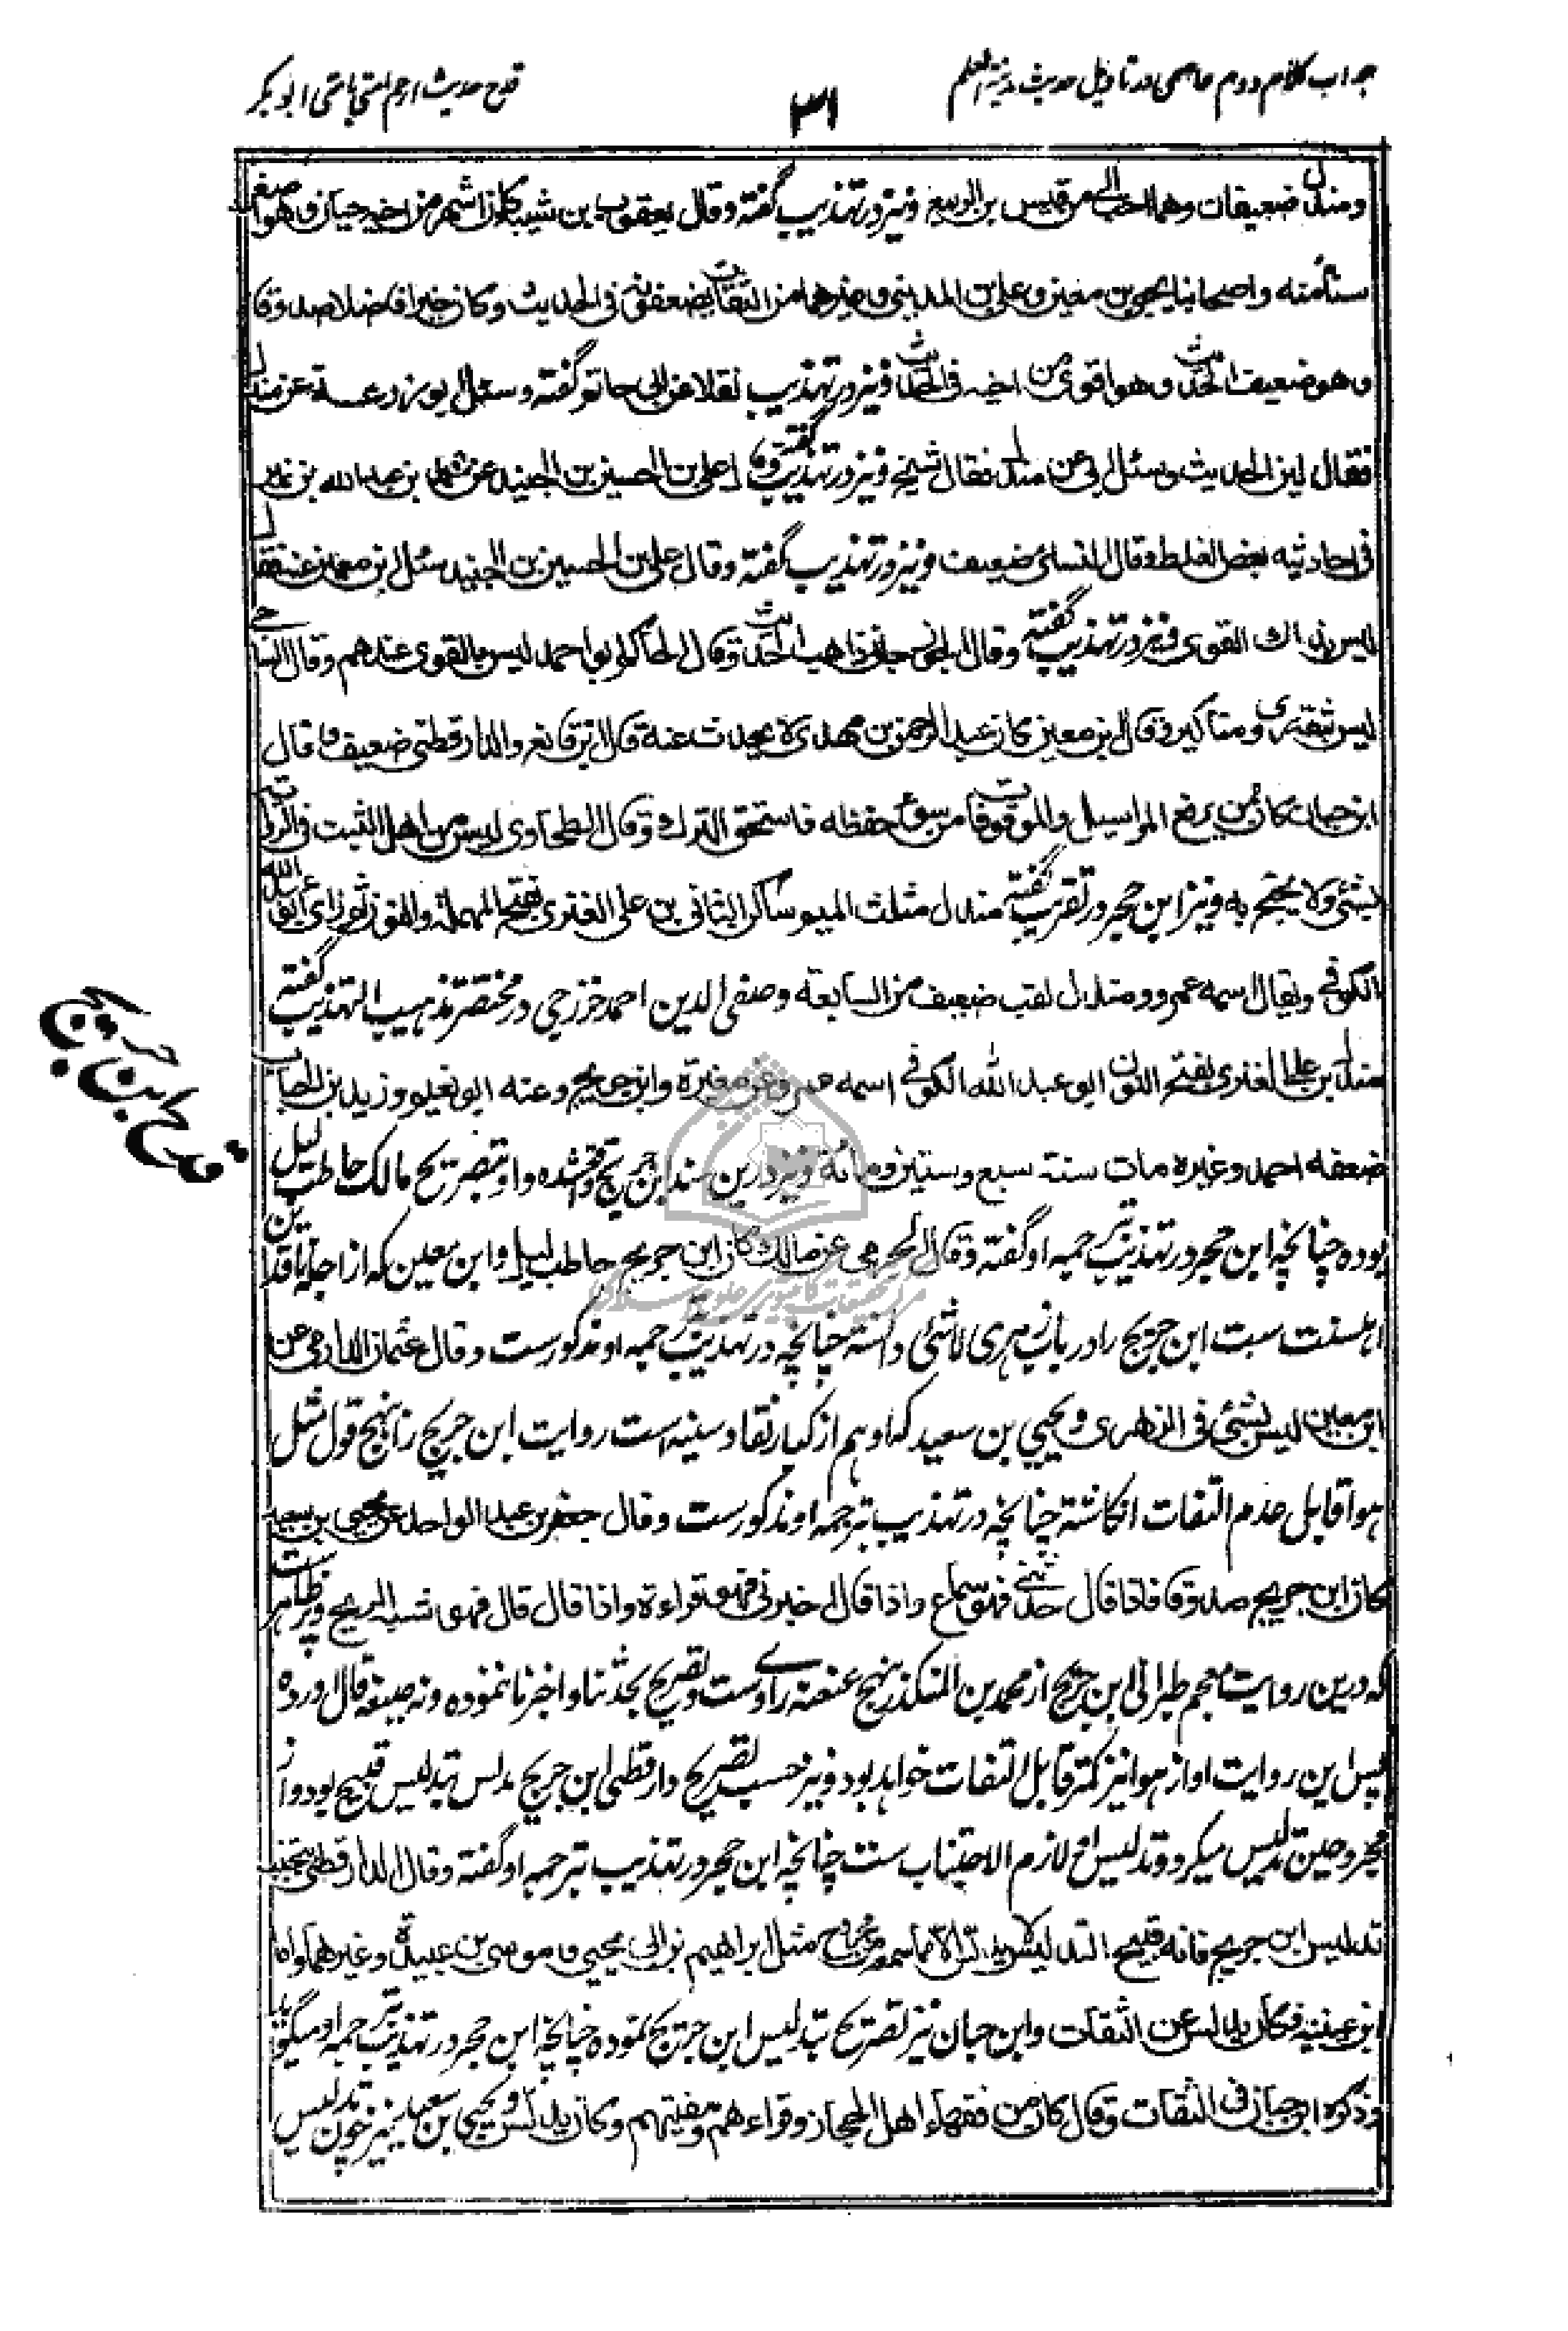 جواب کلام دوم عاصمی در تاویل حدیث مدینة العلم
۳۱
قدح حدیث ارحم امتی بامتی ابو بکر
ومندل ضعیفان وهما احب الی من قیس بن الربیع ونیز در تهذیب گفته وقال یعقوب بن شیبة کان اشهر من اخیه حبان وهو اصغر
سنا منه واصحابنا یحیی بن معین وعلی بن المدینی وغیرهما من الثقات یضعفونه فی الحدیث وکان خیرا فاضلا صدوقا
وهو ضعیف الحدیث وهو اقوی من اخیه فی الحدیث ونیز در تهذیب نقلا عن ابی حاتم گفته وسئل ابو زرعة عن مندل
فقال لین الحدیث وسئل ابی عن مندل فقال شیخ ونیز در تهذیب گفته وقال علی بن الحسین بن الجنید عن محمد بن عبد الله بن نمیر
فی احادیثه بعض الغلط وقال النسائی ضعیف ونیز در تهذیب گفته وقال علی بن الحسین بن الجنید سئل ابن معین عنه فقال
لیس بذاك القوی ونیز در تهذیب گفته وقال الجوزجانی ذاهب الحدیث وقال الحاکم ابو احمد لیس بالقوی عندهم وقال الساجی
لیس بثقة روی مناکیر وقال ابن معین کان عبد الرحمن بن مهدی لا یحدث عنه وقال ابن قانع والدارقطنی ضعیف وقال
ابن حبان کان ممن یرفع المراسیل والموقوفات من سوء حفظه فاستحق الترك وقال الطحاوی لیس من اهل الثبت فی الروایة
بشئ ولا یحتج به ونیز ابن حجر در تقریب گفته مندل مثلث المیم ساکن الثانی بن علی العنزی بفتح المهملة والنون ثم زای ابو عبد الله
الکوفی ویقال اسمه عمرو ومندل لقب ضعیف من السابعة وصفی الدین احمد خزرجی در مختصر تذهیب التهذیب گفته
مندل بن علی العنزی بفتح النون ابو عبد الله الکوفی اسمه عمرو عن مغیرة وابن جریج وعنه ابو نعیم وزید بن الحباب
قدح ابن جریج
ضعفه احمد وغیره مات سنة سبع وستین ومائة ونیز درین سند ابن جریج واقع شده واو بتصریح مالک حاطب لیل
بوده چنانچه ابن حجر در تهذیب بترجمه او گفته وقال المخرمی عن مالك کان ابن جریج حاطب لیل وابن معین که از اجله ناقدین
اهلسنت ست ابن جریج را در باب زهری لا شئ دانسته چنانچه در تهذیب بترجمه او مذکورست وقال عثمان الدارمی عن
ابن معین لیس بشئ فی الزهری ویحیی بن سعید که او هم از کبار نقاد سنیه است روایت ابن جریج را بنهج قول مثل
هوا قابل عدم التفات انگاشته چنانچه در تهذیب بترجمه او مذکورست وقال جعفر بن عبد الواحد عن یحیی بن سعید
کان ابن جریج صدوقا فاذا قال حدثنی فهو سماع واذا قال اخبرنی فهو قراءة واذا قال قال فهو شبه الریح وپر ظاهرست
که درین روایت معجم طبرانی ابن جریج از محمد بن المنکدر بنهج عنعنه راوی ست وتصریح بحدثنا واخبرنا ننموده ونه صیغه قال آورده
پس این روایت او از هوا نیز کمتر قابل التفات خواهد بود ونیز حسب تصریح دارقطنی ابن جریج مدلس بتدلیس قبیح بود واز
مجروحین تدلیس میکرد وتدلیس او لازم الاجتناب ست چنانچه ابن حجر در تهذیب بترجمه او گفته وقال الدارقطنی تجنب
تدلیس ابن جریج فانه قبیح التدلیس لا یدلس الا فیما سمعه من مجروح مثل ابراهیم بن ابی یحیی وموسی بن عبیدة وغیرهما واما
ابن عیینه فکان یدلس عن الثقات وابن حبان نیز تصریح بتدلیس ابن جریج نموده چنانچه ابن حجر در تهذیب بترجمه او میگوید
وذکره ابن حبان فی الثقات وقال کان من فقهاء اهل الحجاز وقراءهم ومتقنیهم وکان یدلس ویحیی بن سعید نیز خون تدلیس